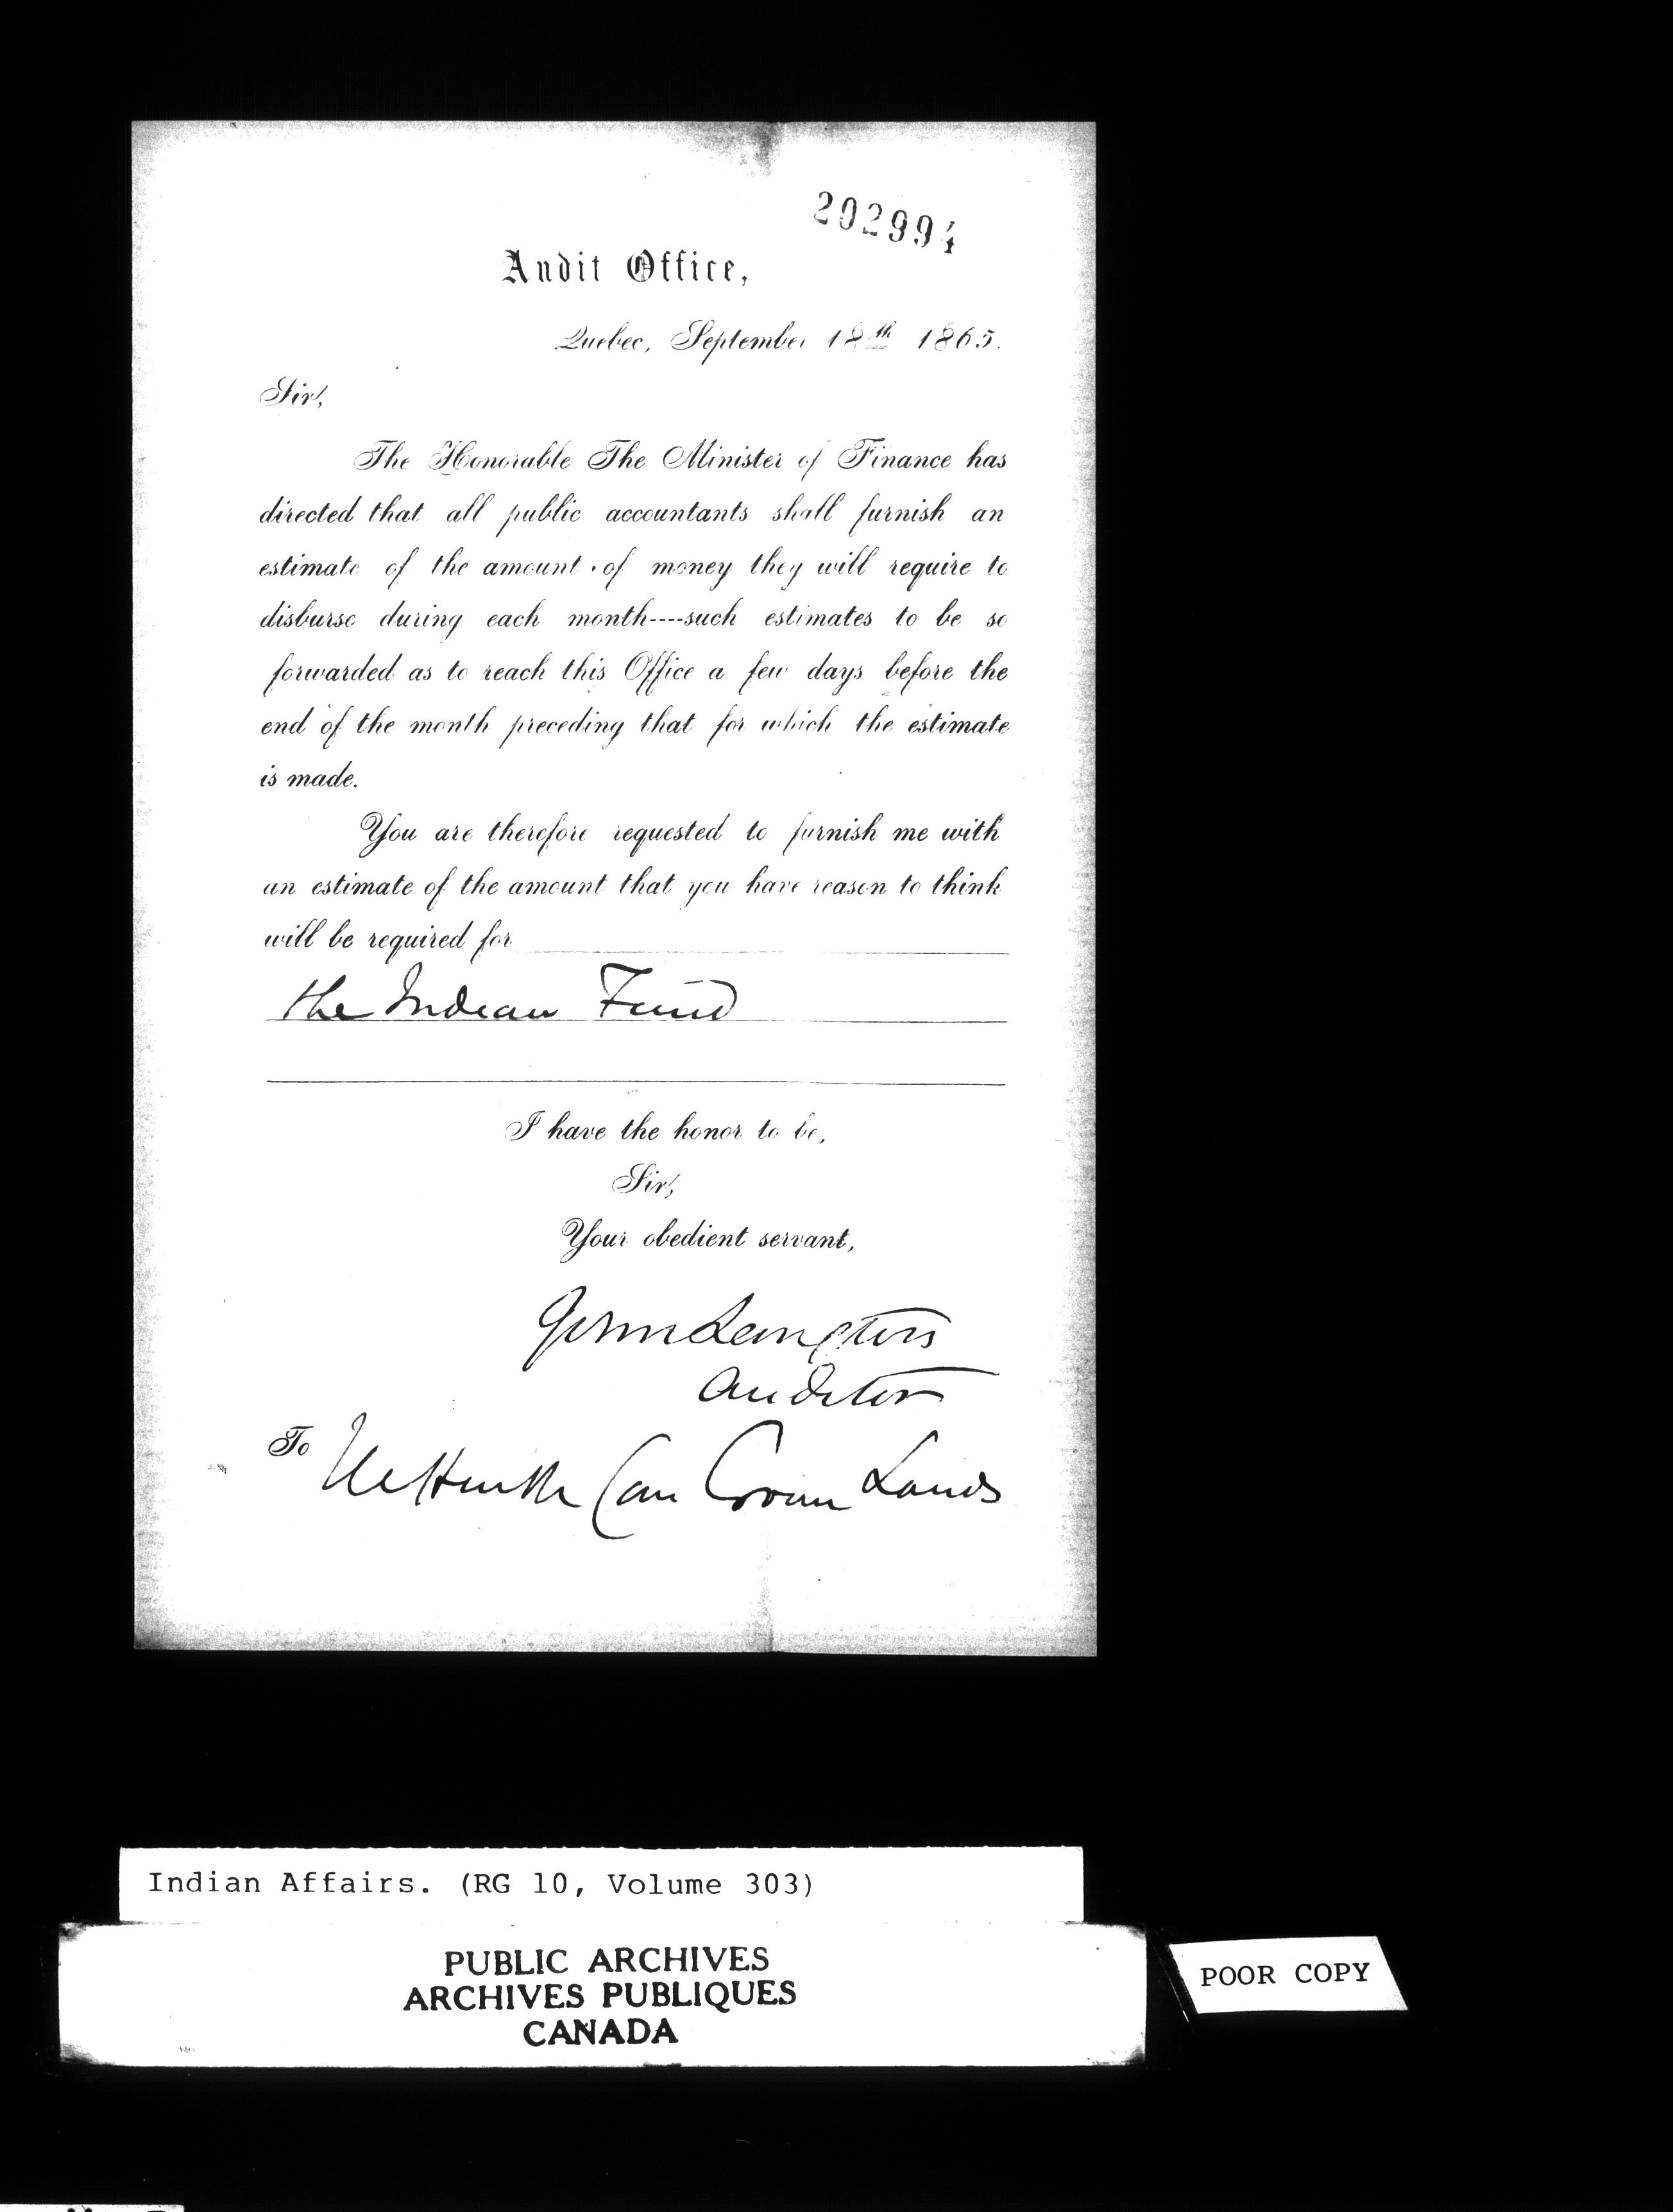 202994
Audit Office,
Quebec, September 18th 1865.
Sir,
The Honorable The Minister of Finance has
directed that all public accountants shall furnish an
estimate of the amount of money they will require to
disburse during each month----such estimates to be so
forwarded as to reach this Office a few days before the
end of the month preceding that for which the estimate
is made.
You are therefore requested to furnish me with
an estimate of the amount that you have reason to think
will be required for
the Indian Fund
I have the honor to be,
Sir,
Your obedient servant,
John Langton
Auditor
To The Honble Com Crown Lands
Indian Affairs. (RG 10, Volume 303)
PUBLIC ARCHIVES
ARCHIVES PUBLIQUES
CANADA
POOR COPY